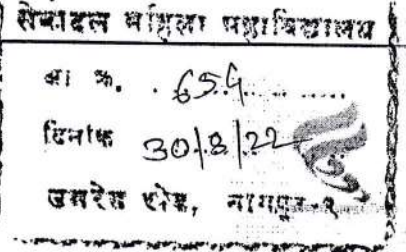 सेवादल महिला महाविद्यालय
आ क्र. . 654 ........
दिनांक 30/8/22
उमरेड रोड, नागपूर-९